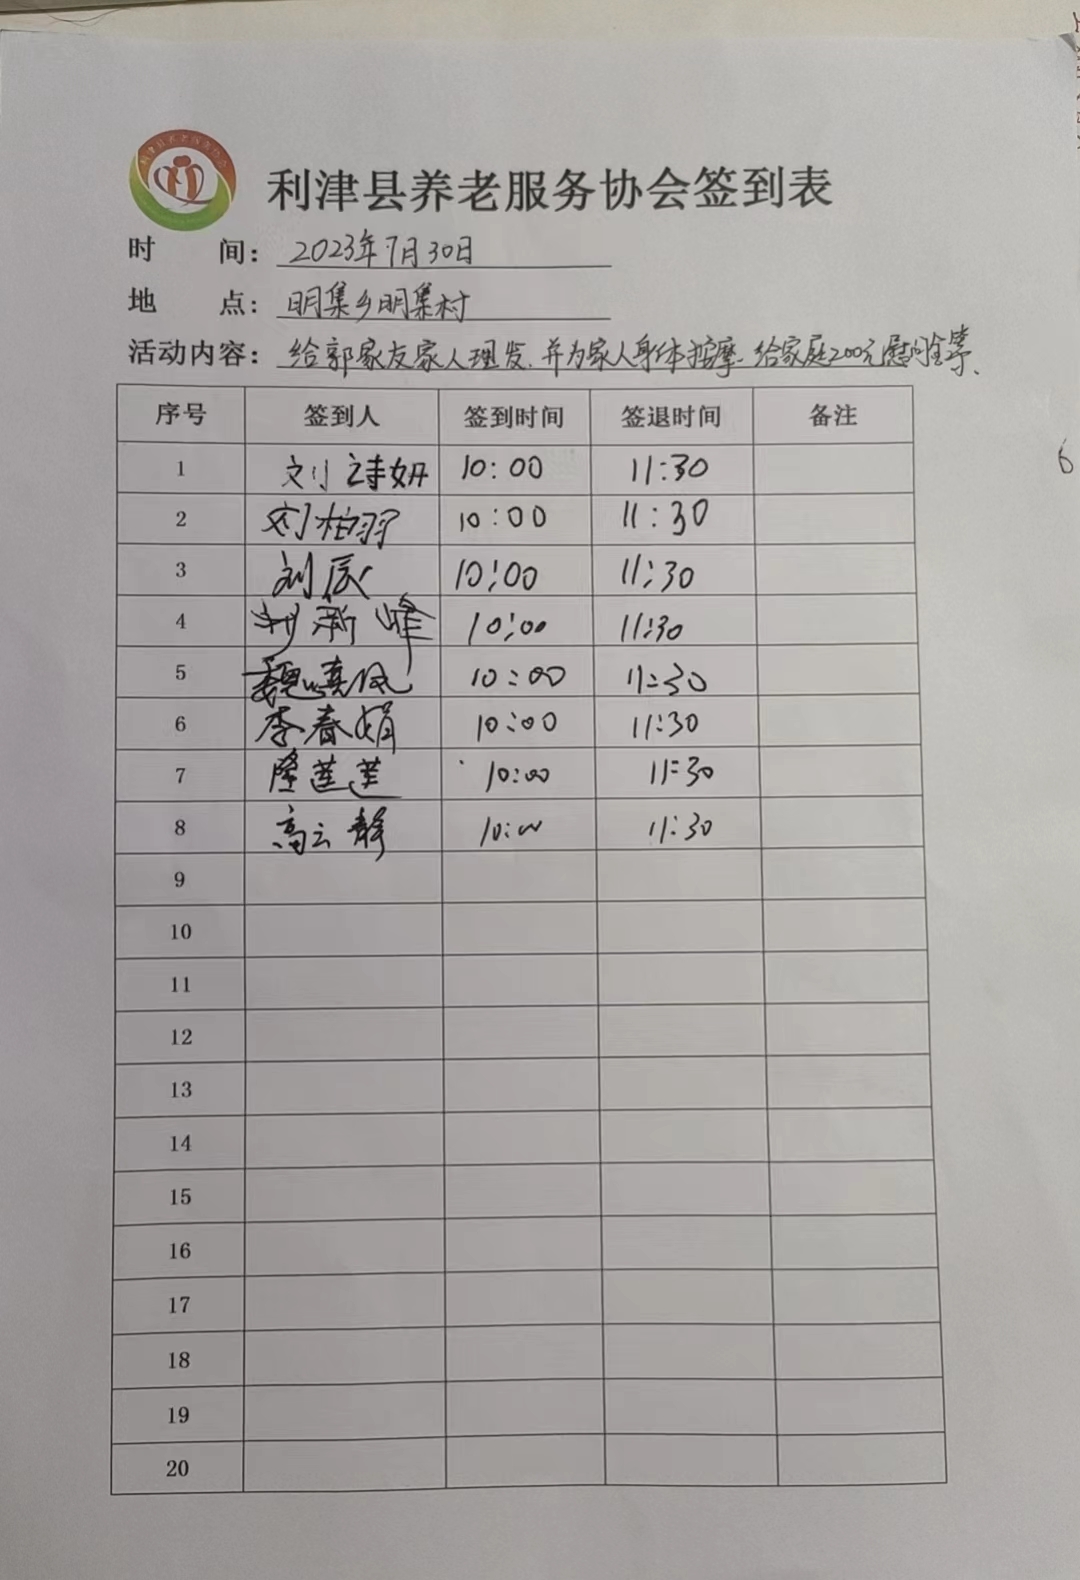 利津县养老服务协会签到表
时 间: 2023年7月30日
地 点: 明集乡明集村
活动内容: 给郭家友家人理发.并为家人身体按摩.给家庭200元慰问金等.
序号 签到人 签到时间 签退时间 备注
1 刘诗妍 10:00 11:30
2 刘柏羽 10:00 11:30
3 刘辰 10:00 11:30
4 刘新峰 10:00 11:30
5 魏凤 10:00 11:30
6 李春娟 10:00 11:30
7 隆莲莲 10:00 11:30
8 高云静 10:00 11:30
9
10
11
12
13
14
15
16
17
18
19
20
6